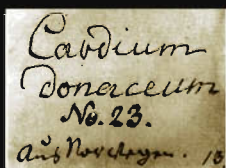 Cardium
donaceum
No. 23.
aus Norwegen. 13